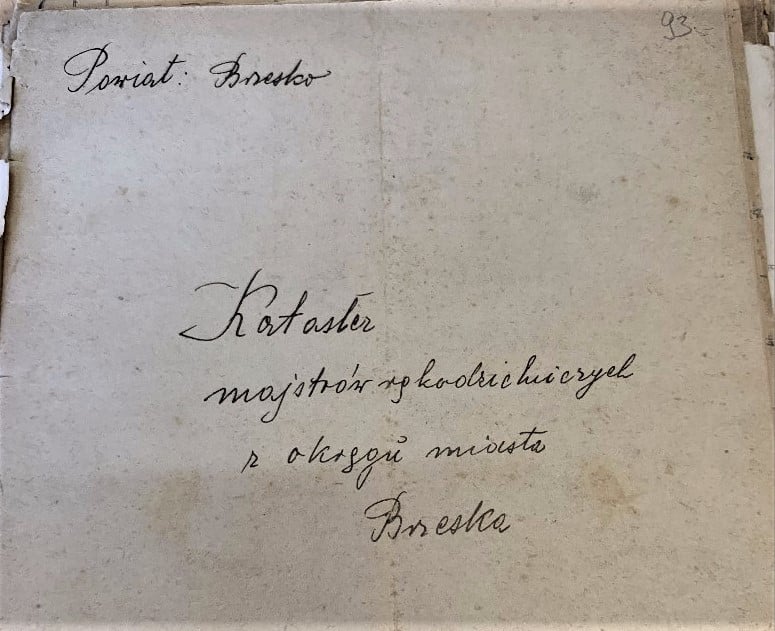 93.
Powiat: Brzesko
Kataster
majstrów rękodzielniczych
z okręgu miasta
Brzeska